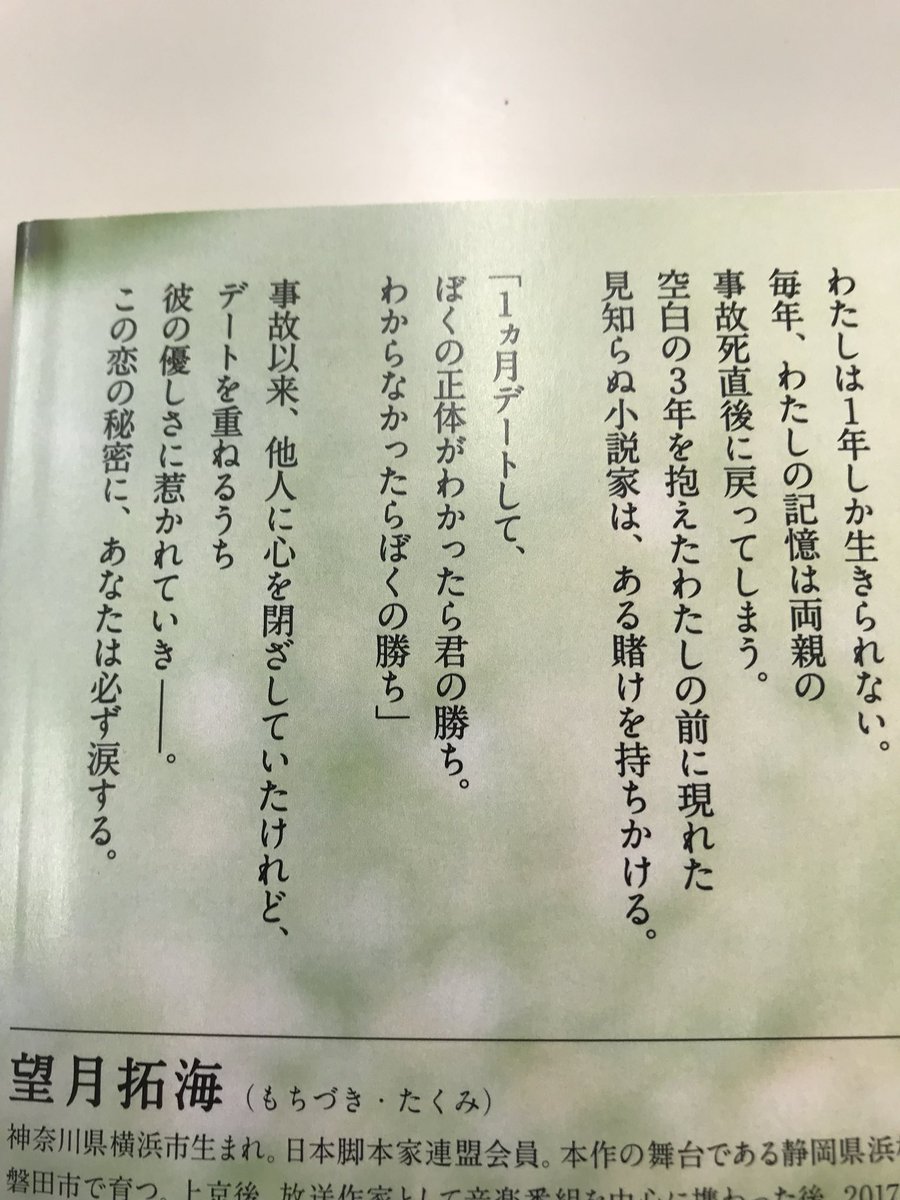 わたしは1年しか生きられない。
毎年、わたしの記憶は両親の
事故死直後に戻ってしまう。
空白の3年を抱えたわたしの前に現れた
見知らぬ小説家は、ある賭けを持ちかける。
「1ヵ月デートして、
ぼくの正体がわかったら君の勝ち。
わからなかったらぼくの勝ち」
事故以来、他人に心を閉ざしていたけれど、
デートを重ねるうち
彼の優しさに惹かれていき――。
この恋の秘密に、あなたは必ず涙する。
望月拓海(もちづき・たくみ)
神奈川県横浜市生まれ。日本脚本家連盟会員。本作の舞台である静岡県浜
磐田市で育つ。上京後、放送作家として音楽番組を中心に携わった後、2017